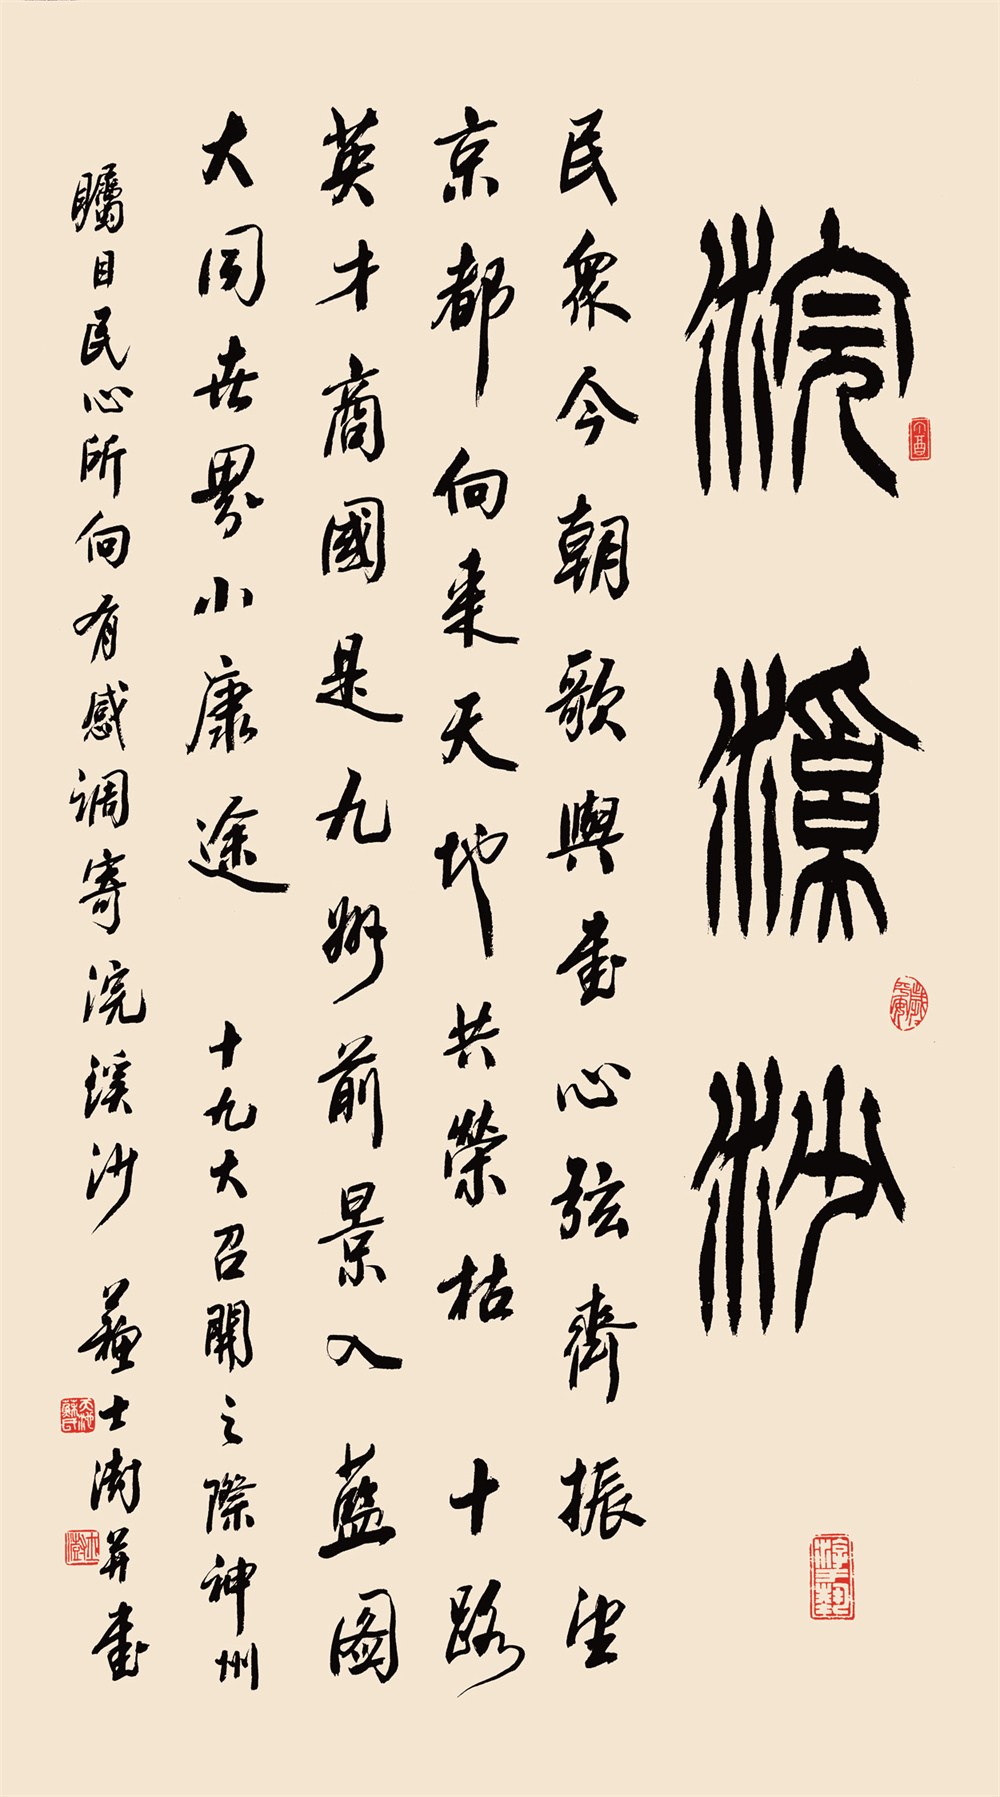 浣溪沙
民眾今朝歌與書心弦齊振望
京都向來天地共榮枯十路
英才商國是九州前景入藍图
大同世界小康途 十九大召開之際神州
矚目民心所向有感调寄浣溪沙 蘇士澍并書